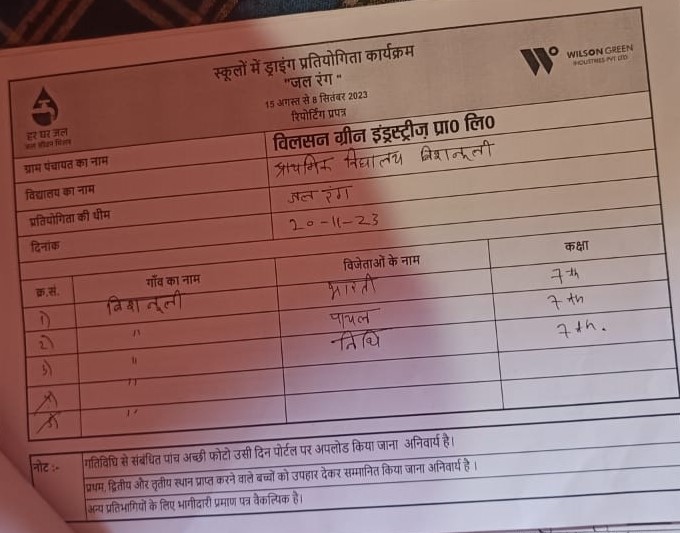 स्कूलों में ड्राइंग प्रतियोगिता कार्यक्रम
"जल रंग"
15 अगस्त से 8 सितंबर 2023
रिपोर्टिंग प्रपत्र
हर घर जल
जल जीवन मिशन
WILSON GREEN
INDUSTRIES PVT LTD
विलसन ग्रीन इंडस्ट्रीज़ प्रा० लि०
ग्राम पंचायत का नाम प्राथमिक विद्यालय
विद्यालय का नाम जल रंग
प्रतियोगिता की थीम 20-11-23
दिनांक
क्र.सं. गाँव का नाम विजेताओं के नाम कक्षा
1) भारती 7th
2) " पायल 7th
3) " निधि 7th.
"
"
नोट :- गतिविधि से संबंधित पांच अच्छी फोटो उसी दिन पोर्टल पर अपलोड किया जाना अनिवार्य है।
प्रथम, द्वितीय और तृतीय स्थान प्राप्त करने वाले बच्चों को उपहार देकर सम्मानित किया जाना अनिवार्य है ।
अन्य प्रतिभागियों के लिए भागीदारी प्रमाण पत्र वैकल्पिक है।